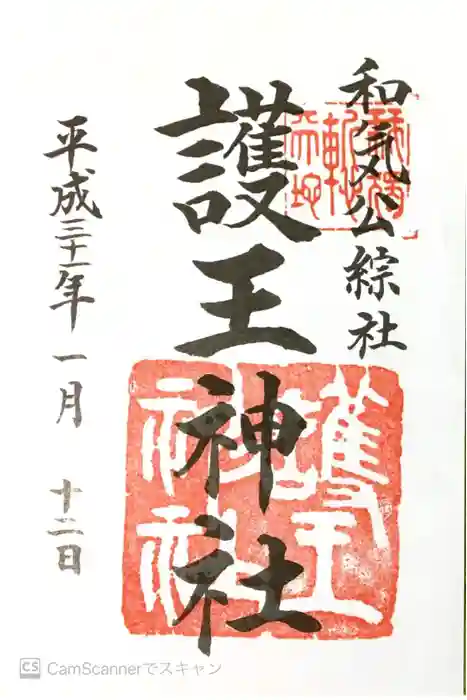 和気公綜社
護王神社
平成三十一年一月十二日
護王神社
CS CamScannerでスキャン